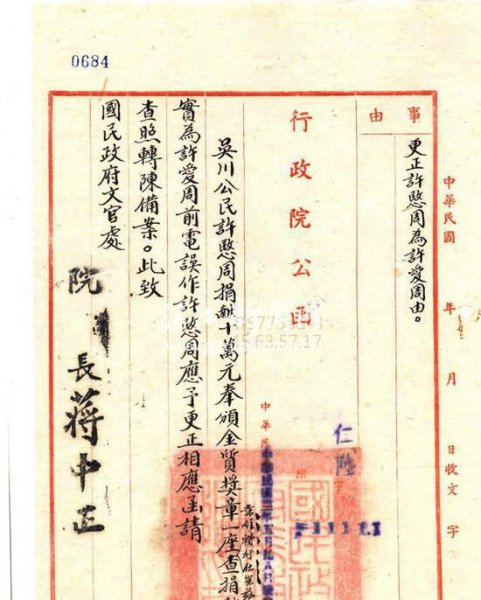 0684
事由
更正許愍周為許愛周由。
中華民國 年 月 日收文 字
行政院公函
仁陸
中華民
吳川公民許愍周捐 十萬元奉頒金質獎章一座查捐
實為許愛周前電誤作許愍周應予更正相應函請
查照轉陳備案。此致
國民政府文官處
院長蔣中正